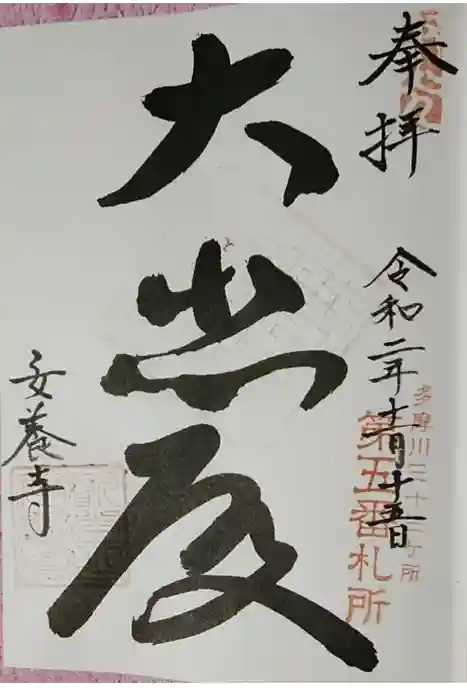 奉拝
令和二年十一月十五日
多摩川三十三ヶ所
第五番札所
大悲殿
安養寺